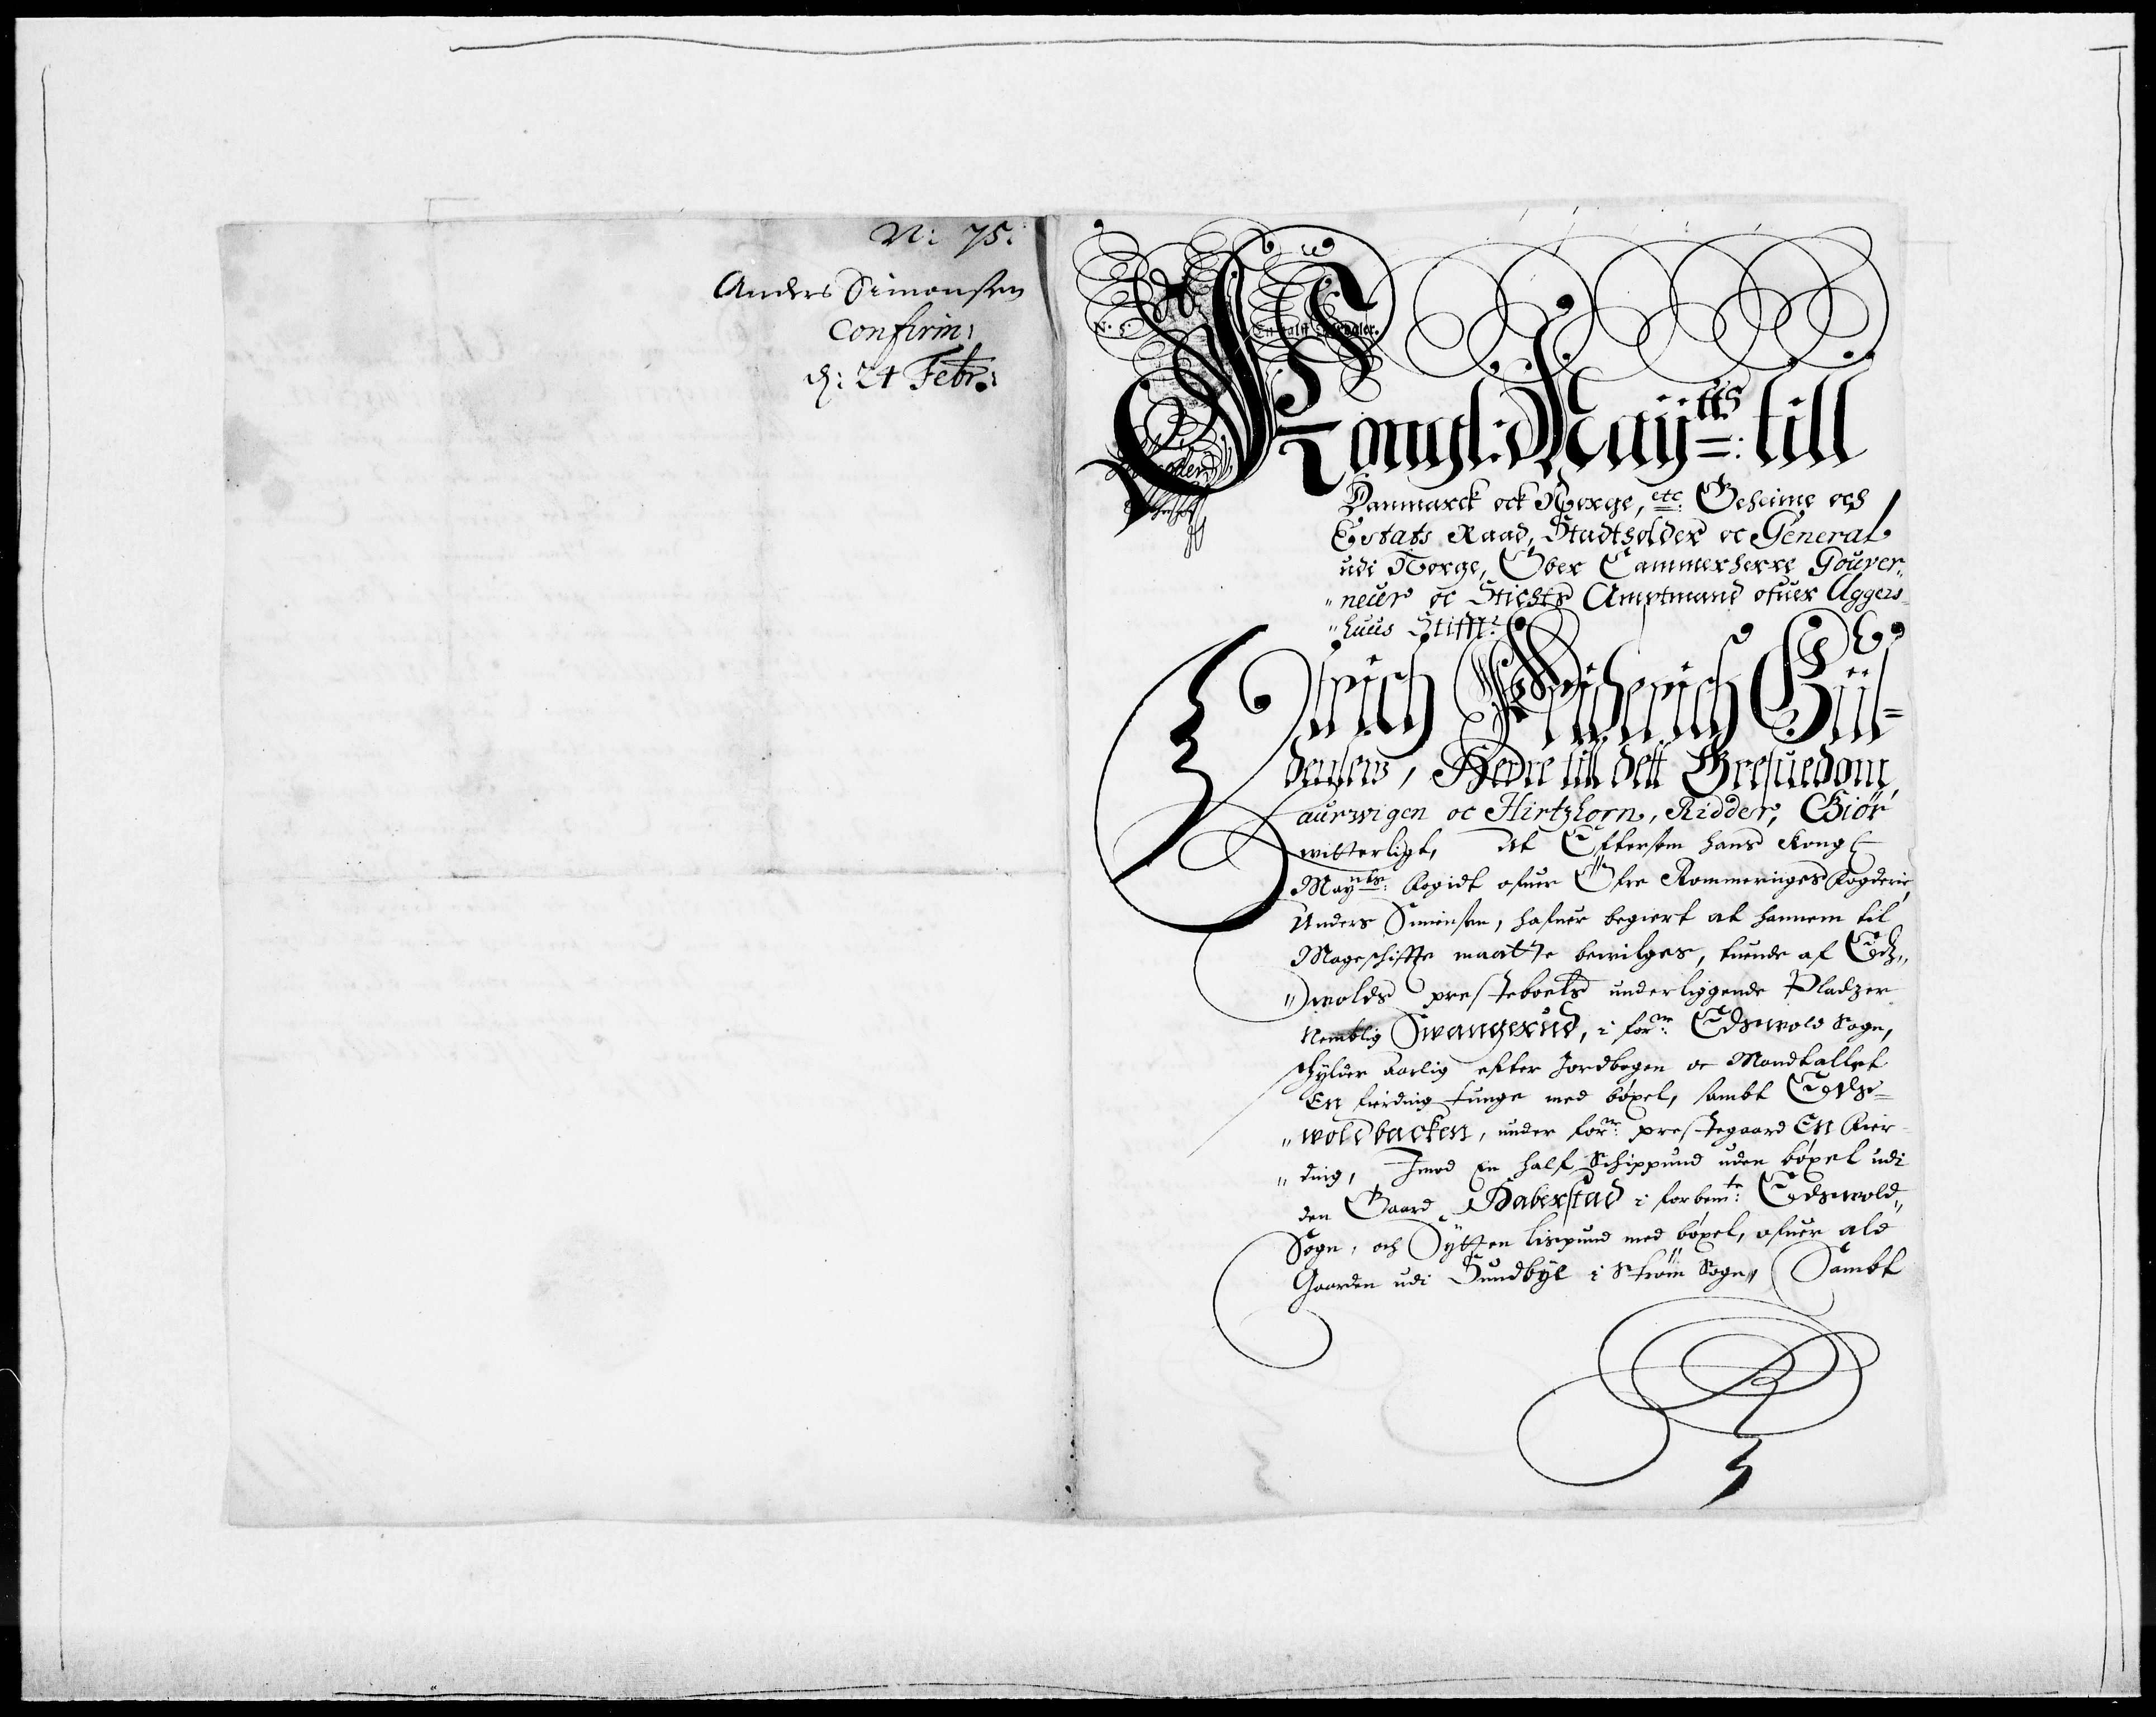 N: 75.
Anders Simonsen
Confirm:
d: 24 Febr:
N. 5.
En halff
Kongl: May:tts till
Danmarck ock Norge, etc. Geheime och
Estats Raad, Stadtholder oc General
udi Norge, Ober Cammerherre Gouver„
„neur oc Stichts Amptmand ofuer Aggers-
„huus Stifft:
Ulrich Friderich Gül=
denlew, Herre till dett Grefuedom
Laurwigen oc Hirtzhorn, Ridder, Giör
witterligt, At Eftersom hans Kongl
Mayts: fogidt ofuer Öfre Rommeriges fogderie,
Anders Simensen, hafuer begiert at hannem til
Mageschifte maatte bewilges, tuende af Edtz„
„wolds prestebolts underliggende Pladzer
Nemblig Swangerud, i forne: Edtzwold Sogn,
schylder aarlig efter Jordbogen oc Mandtallet
En fierding tunge med böxel, sambt Edtz=
„woldbacken, under forne: prestegaard En fier-
„ding, Imod En half Schippund uden böxel udi
den Gaard Haberstad i forbemte: Edtzwold„
Sogn, och Sytten lispund med böxel, ofuer ald
Gaarden udi Sundbye i Ström Sogn, Sambt